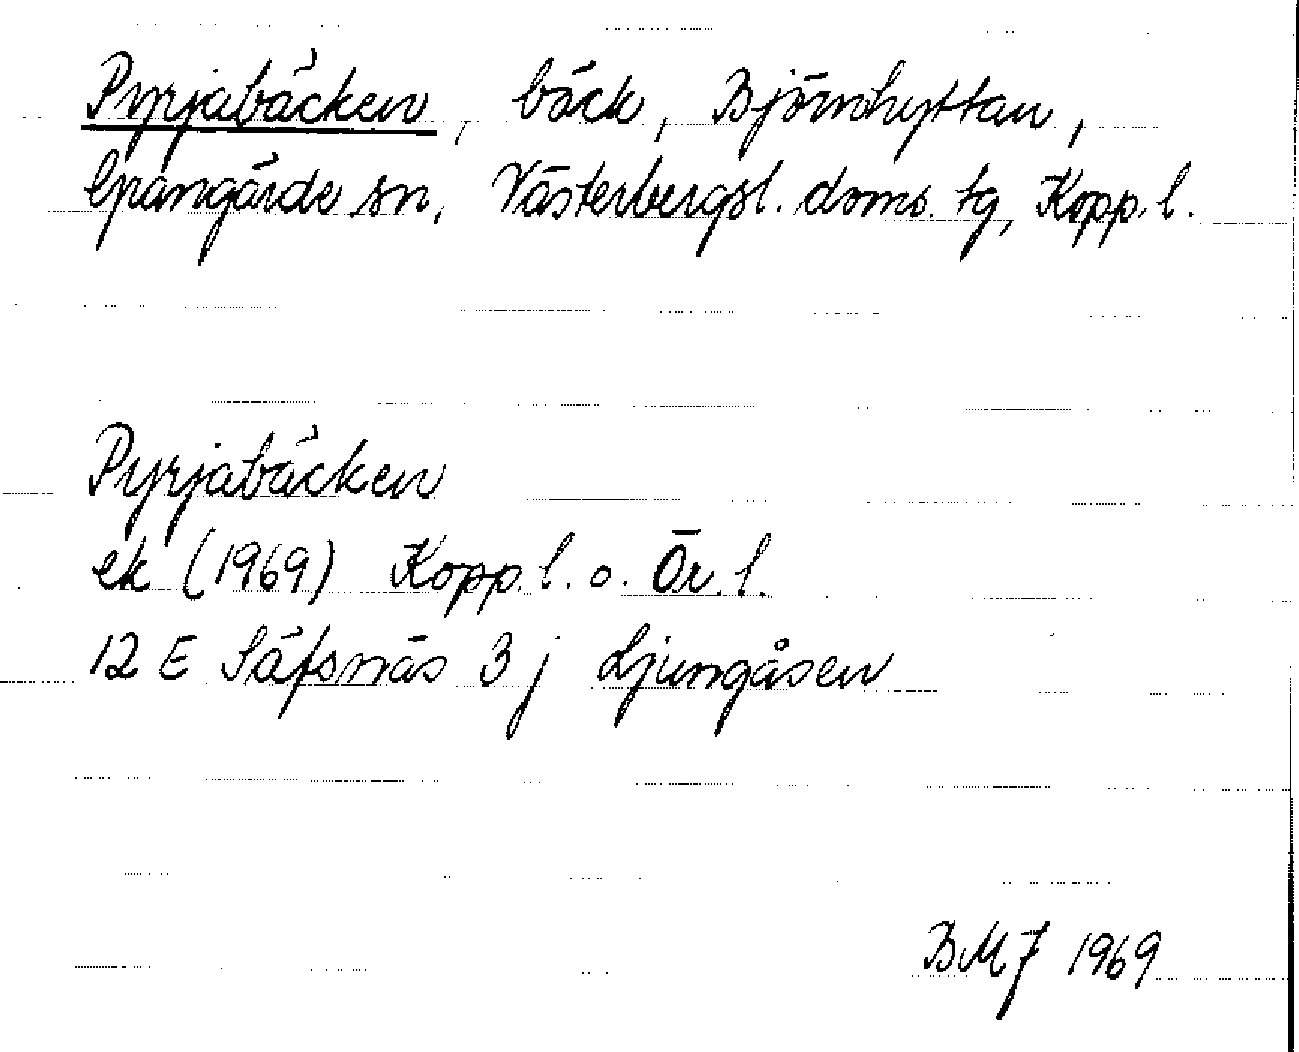 Pyrjabäcken, bäck, Björnhyttan,
Grangärde sn, Västerbergsl. doms. tg, Kopp. l.
Pyrjabäcken
ek (1969) Kopp. l. o. Ör. l.
12 E Säfsnäs 3 j Ljungåsen
BMJ 1969